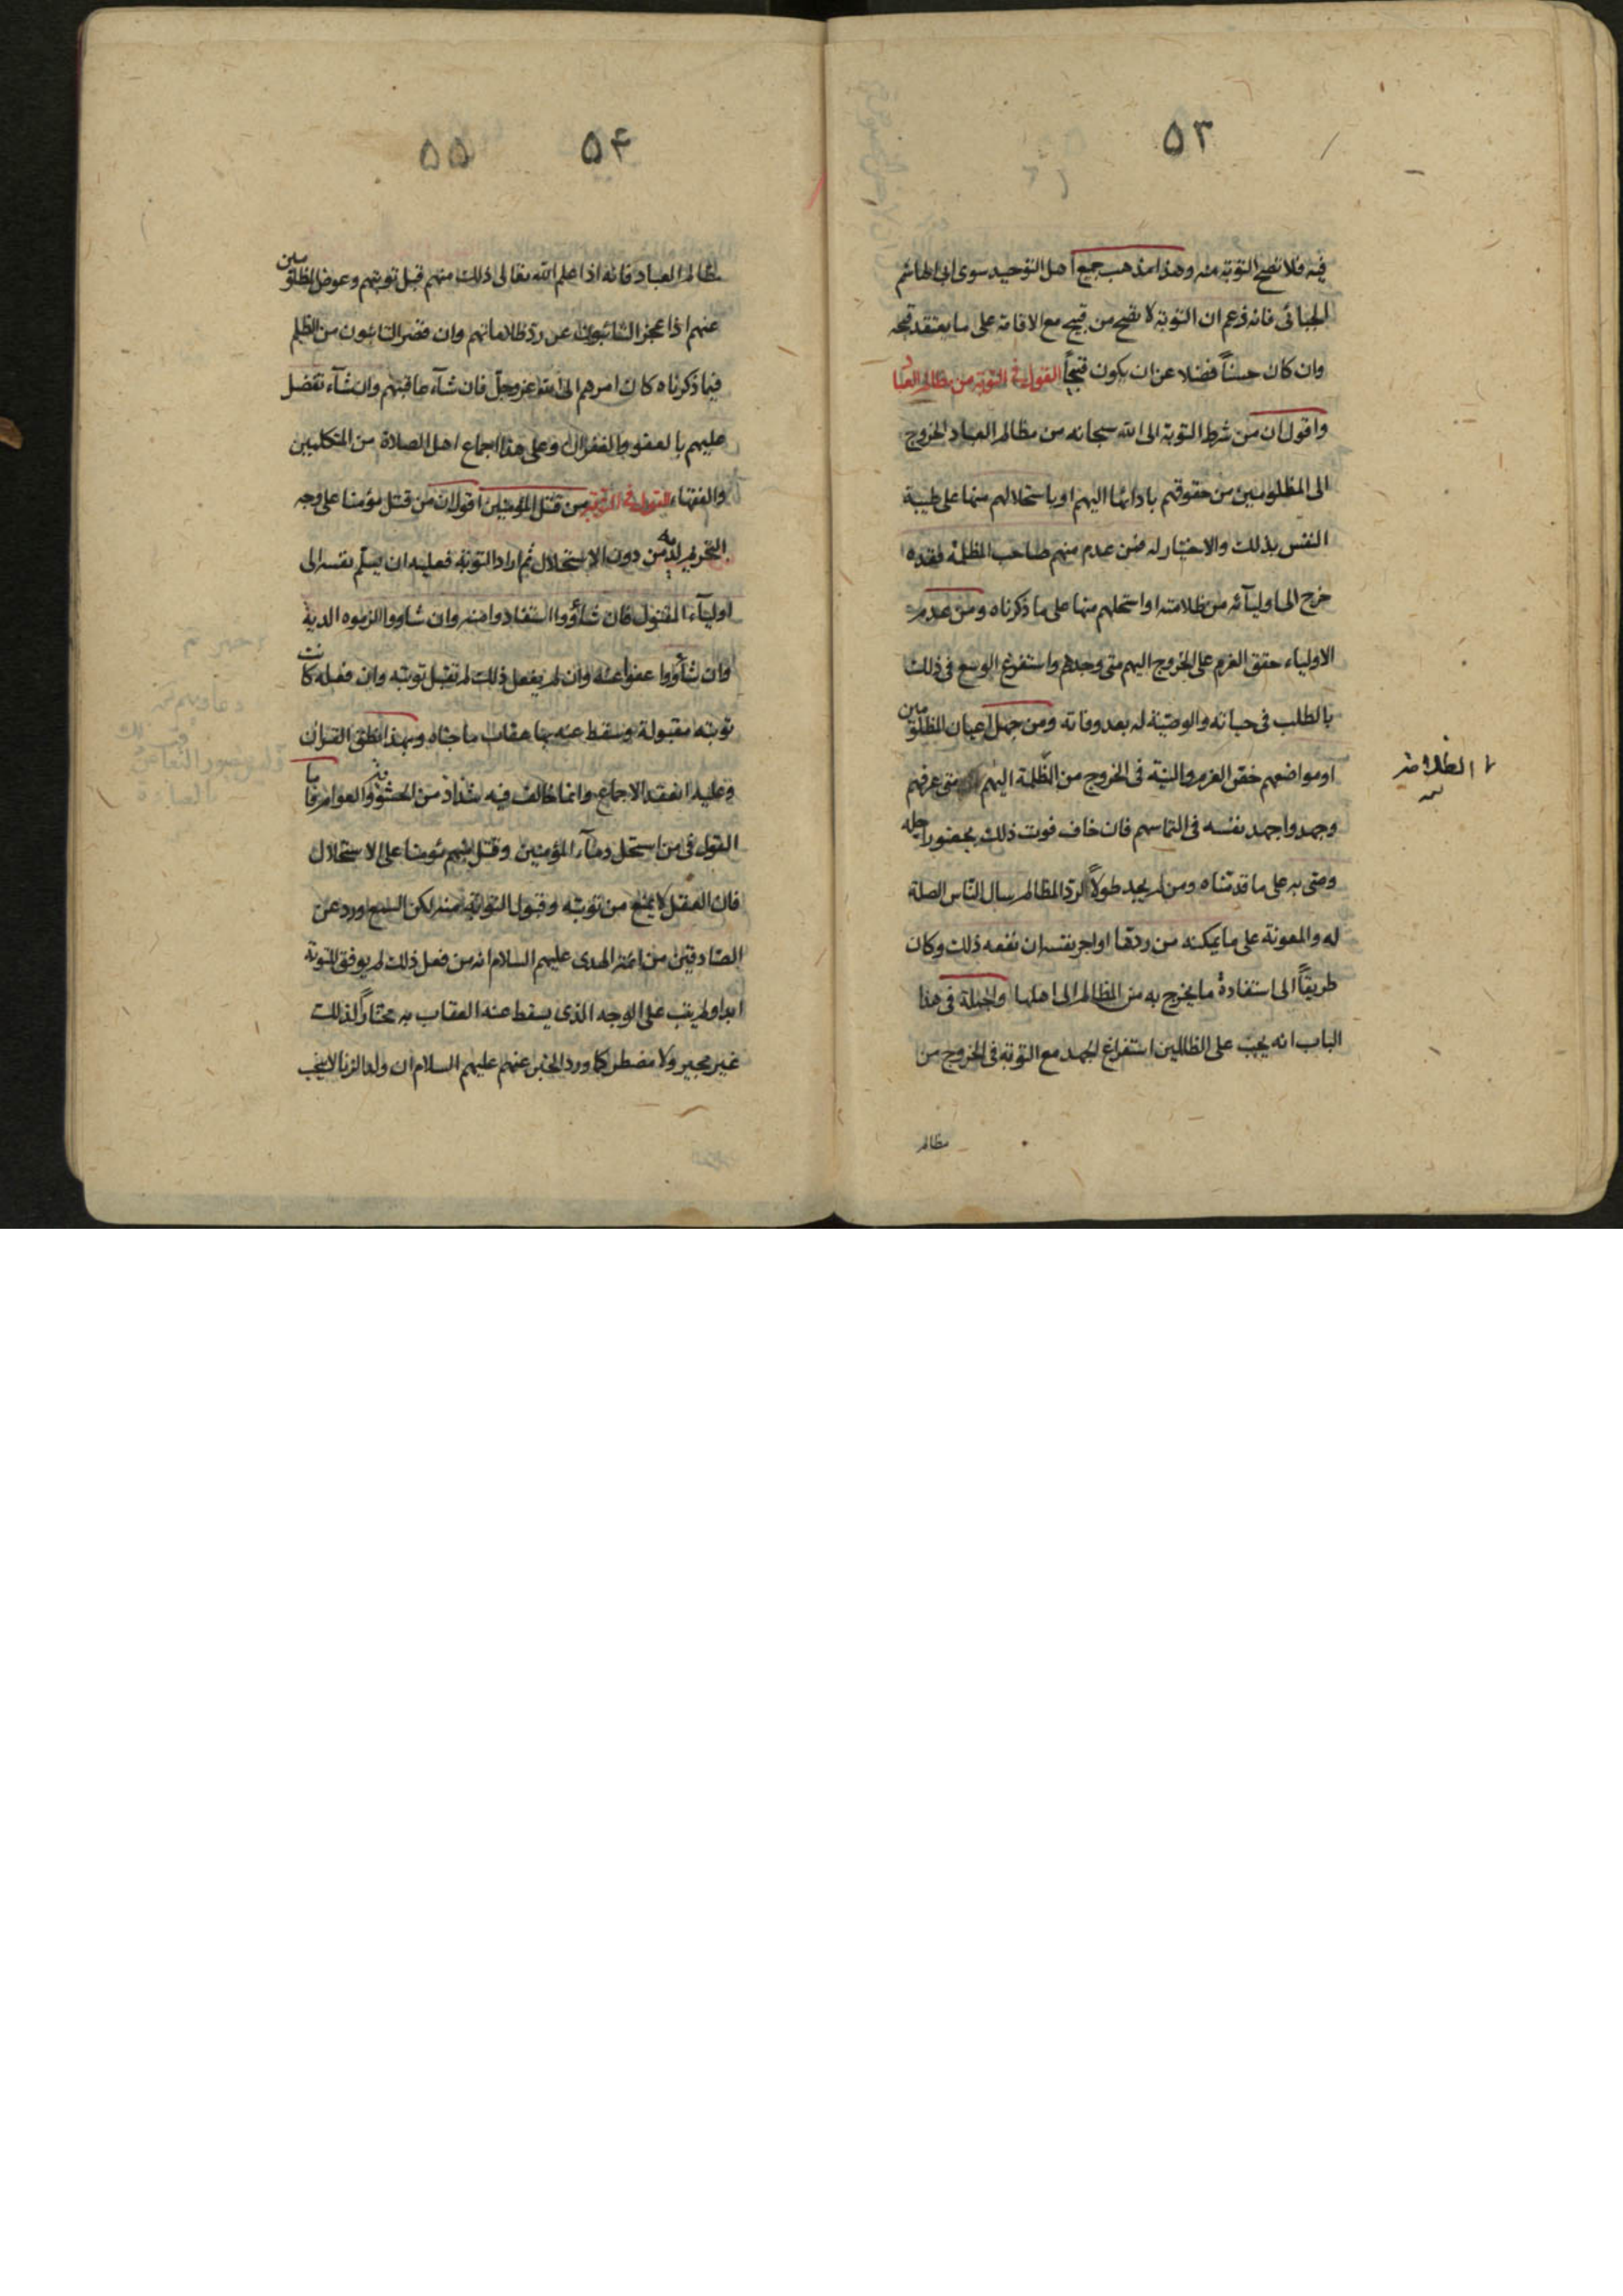 ۵۳
فيه فلا تصح التوبة منه وهذا مذهب جميع اهل التوحيد سوى ابى هاشم
الجبائى فانه زعم ان التوبة لا تصح من قبيح مع الاقامة على ما يعتقد قبحه
وان كان حسناً فضلا عن ان يكون قبيحاً القول فى التوبة من مظالم العباد
واقول ان من شرط التوبة الى الله سبحانه من مظالم العباد الخروج
الى المظلومين من حقوقهم بادائها اليهم او باستحلالهم منها على طيبة
النفس بذلك والاختيار له فمن عدم منهم صاحب المظلمة فقده
خرج الى اوليآئه من ظلامته او استحلهم منها على ما ذكرناه ومن عدم
الاولياء حقق العزم على الخروج اليهم متى وجدهم واستفرغ الوسع فى ذلك
بالطلب فى حياته والوصيّة له بعد وفاته ومن جهل اعيان المظلومين
او مواضعهم حقق العزم والنية فى الخروج من الظلمة اليهم متى عرفهم
وجهد واجهد نفسه فى التماسهم فان خاف فوت ذلك بحضور اجله
وصى به على ما قدمناه ومن لم يجد طولاً لرد المظالم سال الناس الصلة
له والمعونة على ما يمكنه من ردها او اجر نفسه ان نفعه ذلك وكان
طريقاً الى استفادة ما يخرج به من المظالم الى اهلها والجملة فى هذا
الباب انه يجب على الظالمين استفراغ الجهد مع التوبة فى الخروج من
مظالم
الظلامة
۵۴
۵۵
مظالم العباد فانه اذا علم الله تعالى ذلك منهم قبل توبتهم وعوض المظلومين
عنهم اذا عجز التائبون عن رد ظلاماتهم وان قصر التائبون من الظلم
فيما ذكرناه كان امرهم الى الله عز وجل فان شآء عاقبهم وان شآء تفضل
عليهم بالعفو والغفران وعلى هذا اجماع اهل الصلاة من المتكلمين
والفقهاء القول فى التوبة من قتل المؤمنين اقول ان من قتل مؤمنا على وجه
التحريم لدمه من دون الاستحلال ثم اراد التوبة فعليه ان يسلّم نفسه الى
اوليآء المقتول فان شآؤوا استقادوا منه وان شاووا الزموه الدية
وان شآؤوا عفوا عنه وان لم يفعل ذلك لم تقبل توبته وان فعله كانت
توبته مقبولة وسقط عنه بها عقاب ما جناه وبهذا نطق القران
وعليه انعقد الاجماع وانما خالف فيه شذاذ من الحشوية والعوام فاما
القول فى من استحل دمآء المؤمنين وقتل منهم مؤمنا على الاستحلال
فان العقل لا يمنع من توبته وقبول التوبة منه لكن السمع ورد عن
الصادقين من ائمة الهدى عليهم السلام انه من فعل ذلك لم يوفق للتوبة
ابدا ولم يتب على الوجه الذى يسقط عنه العقاب به مختاراً لذلك
غير مجبر ولا مضطر كما ورد الخبر عنهم عليهم السلام ان ولد الزنا لا ينجب